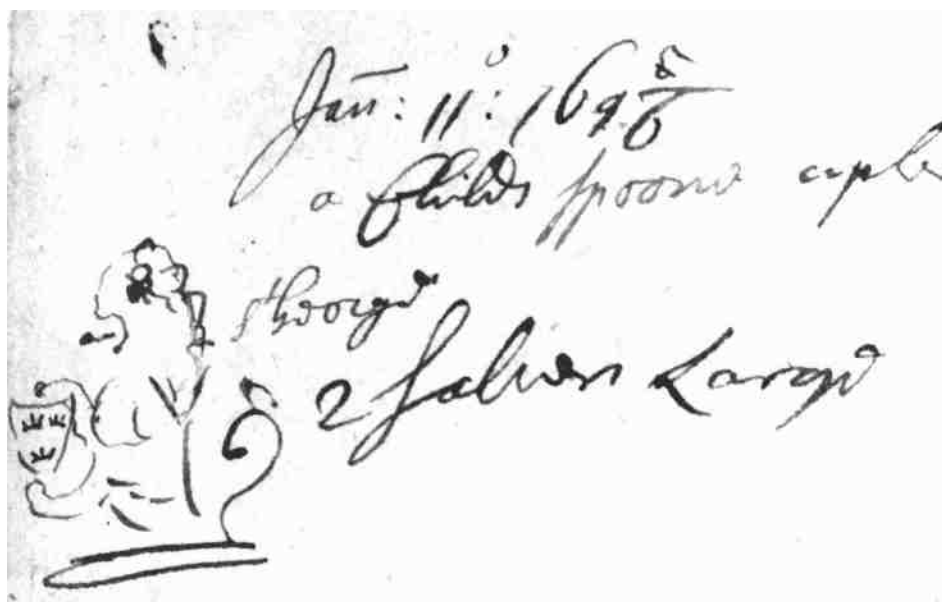 Jan: 11: 169 5/6
a Childs spoone
St George
2 Salvers Large